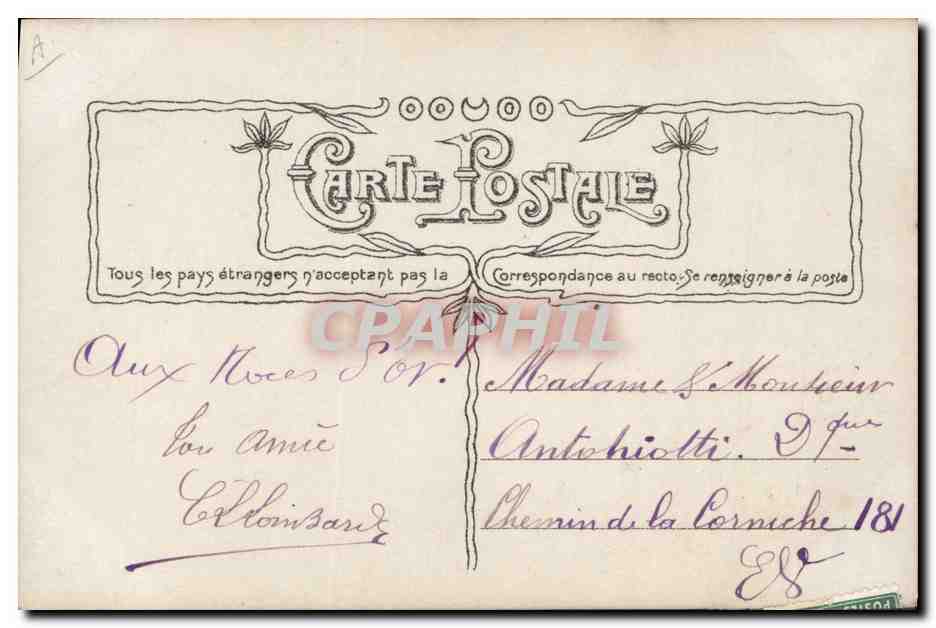 A
CARTE POSTALE
Tous les pays étrangers n'acceptent pas la Correspondance au recto. Se renseigner à la poste
CPAPHIL
Aux Noces d'or!
Ton Amie
Madame & Monsieur
Antoniotti. Dque
Chemin de la Corniche 181
EV
POSTES